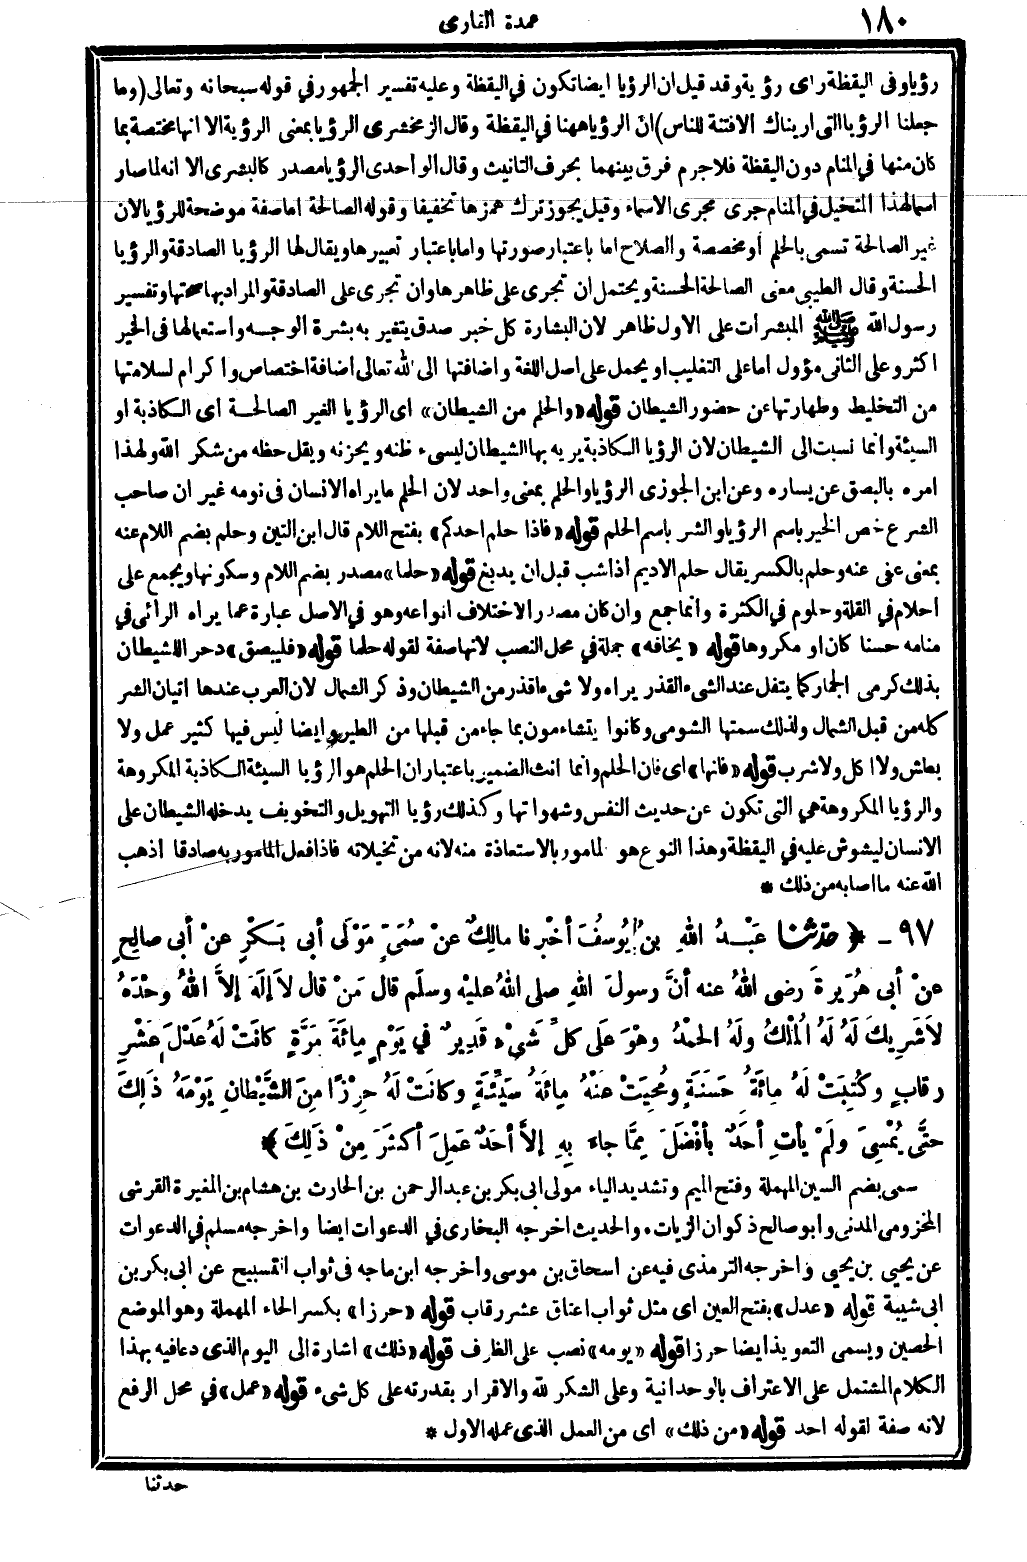 ١٨٠
عمدة القارى
رؤيا وفى اليقظة راى رؤية وقد قيل ان الرؤيا ايضا تكون في اليقظة وعليه تفسير الجمهور في قوله سبحانه وتعالى (وما
جعلنا الرؤيا التى اريناك الا فتنة للناس) انّ الرؤيا ههنا في اليقظة وقال الزمخشرى الرؤيا بمعنى الرؤية الا انها مختصة بما
كان منها في المنام دون اليقظة فلا جرم فرق بينهما بحرف التانيث وقال الواحدى الرؤيا مصدر كالبشرى الا انه لما صار
اسما لهذا المتخيل في المنام جرى مجرى الاسماء وقيل يجوز ترك همزها تخفيفا وقوله الصالحة اما صفة موضحة للرؤيا لان
غير الصالحة تسمى بالحلم أو مخصصة والصلاح اما باعتبار صورتها واما باعتبار تعبيرها ويقال لها الرؤيا الصادقة والرؤيا
الحسنة وقال الطيبى معنى الصالحة الحسنة ويحتمل ان تجرى على ظاهرها وان تجرى على الصادقة والمراد بها صحتها وتفسير
رسول الله ﷺ المبشرات على الاول ظاهر لان البشارة كل خبر صدق يتغير به بشرة الوجه واستعمالها فى الخير
اكثر وعلى الثانى مؤول اما على التغليب او يحمل على اصل اللغة واضافتها الى الله تعالى اضافة اختصاص واكرام لسلامتها
من التخليط وطهارتها عن حضور الشيطان قوله «والحلم من الشيطان» اى الرؤيا الغير الصالحة اى الكاذبة او
السيئة وانما نسبت الى الشيطان لان الرؤيا الكاذبة يريه بها الشيطان ليسىء ظنه ويحزنه ويقل حظه من شكر الله ولهذا
امره بالبصق عن يساره وعن ابن الجوزى الرؤيا والحلم بمعنى واحد لان الحلم ما يراه الانسان فى نومه غير ان صاحب
الشرع خص الخير باسم الرؤيا والشر باسم الحلم قوله «فاذا حلم احدكم» بفتح اللام قال ابن التين وحلم بضم اللام عنه
بمعنى عفى عنه وحلم بالكسر يقال حلم الاديم اذا شب قبل ان يدبغ قوله «حلما» مصدر بضم اللام وسكونها ويجمع على
احلام في القلة وحلوم في الكثرة وانما جمع وان كان مصدرا لاختلاف انواعه وهو في الاصل عبارة عما يراه الرائى في
منامه حسنا كان او مكروها قوله «يخافه» جملة في محل النصب لانها صفة لقوله حلما قوله «فليبصق» دحرا للشيطان
بذلك كرمى الجمار كما يتفل عند الشىء القذر يراه ولا شىء اقذر من الشيطان وذكر الشمال لان العرب عندها اتيان الشر
كله من قبل الشمال ولذلك سمتها الشومى وكانوا يتشاءمون بما جاء من قبلها من الطير وايضا ليس فيها كثير عمل ولا
بطش ولا اكل ولا شرب قوله «فانها» اى فان الحلم وانما انث الضمير باعتبار ان الحلم هو الرؤيا السيئة الكاذبة المكروهة
والرؤيا المكروهة هى التى تكون عن حديث النفس وشهواتها وكذلك رؤيا التهويل والتخويف يدخله الشيطان على
الانسان ليشوش عليه في اليقظة وهذا النوع هو المامور بالاستعاذة منه لانه من تخيلاته فاذا فعل المامور به صادقا اذهب
الله عنه ما اصابه من ذلك *
٩٧ - ﴿ حدثنا عَبْدُ اللهِ بنُ يُوسُفَ أخْبرنا مالِكٌ عنْ سُمَىٍّ مَوْلَى أبى بَكْرٍ عنْ أبى صالِحٍ
عنْ أبى هُرَيرةَ رَضى اللهُ عنه أنَّ رسولَ اللهِ صلى اللهُ عليْه وسلَّم قال مَنْ قال لاَ إلَهَ إلاَّ اللهُ وحْدَهُ
لاَ شَرِيكَ لَهُ لَهُ المُلْكُ ولَهُ الحمْدُ وهْوَ عَلَى كلِّ شَىْءٍ قَدِيرٌ في يَوْمٍ مِائَةَ مَرَّةٍ كانَتْ لَهُ عَدْلَ عَشْرِ
رقابٍ وكُتِبَتْ لَهُ مِائَةُ حَسَنَةٍ ومُحِيَتْ عَنْهُ مِائَةُ سَيِّئَةٍ وكانَتْ لَهُ حِرْزًا مِنَ الشَّيْطانِ يَوْمَهُ ذَلِكَ
حتَّى يُمْسِىَ ولَمْ يأتِ أحَدٌ بأفْضَلَ مِمَّا جاءَ بهِ إلاَّ أحَدٌ عَمِلَ أكثَرَ مِنْ ذَلِكَ ﴾
سمى بضم السين المهملة وفتح الميم وتشديد الياء مولى ابى بكر بن عبد الرحمن بن الحارث بن هشام بن المغيرة القرشى
المخزومى المدنى وابو صالح ذكوان الزيات. والحديث اخرجه البخارى في الدعوات ايضا واخرجه مسلم في الدعوات
عن يحيى بن يحيى واخرجه الترمذى فيه عن اسحاق بن موسى واخرجه ابن ماجه فى ثواب التسبيح عن ابى بكر بن
ابى شيبة قوله «عدل» بفتح العين اى مثل ثواب اعتاق عشر رقاب قوله «حرزا» بكسر الحاء المهملة وهو الموضع
الحصين ويسمى التعويذ ايضا حرزا قوله «يومه» نصب على الظرف قوله «ذلك» اشارة الى اليوم الذى دعا فيه بهذا
الكلام المشتمل على الاعتراف بالوحدانية وعلى الشكر لله والاقرار بقدرته على كل شىء قوله «عمل» في محل الرفع
لانه صفة لقوله احد قوله «من ذلك» اى من العمل الذى عمله الاول *
حدثنا